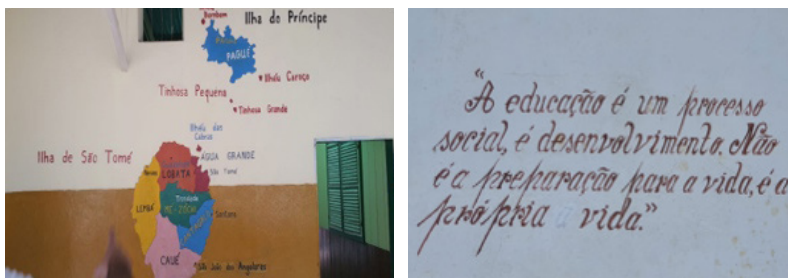 Bombom
Ilha do Príncipe
PAGUÉ
Ilhéu Caroço
Tinhosa Pequena
Tinhosa Grande
Ilhéu das
Cabras
Ilha de São Tomé
ÁGUA GRANDE
LOBATA
São Tomé
Trindade
MÉ-ZÓCHI
LEMBÁ
Santana
CANTAGALO
CAUÉ
São João dos Angolares
"A educação é um processo
social, é desenvolvimento. Não
é a preparação para a vida, é a
própria vida."